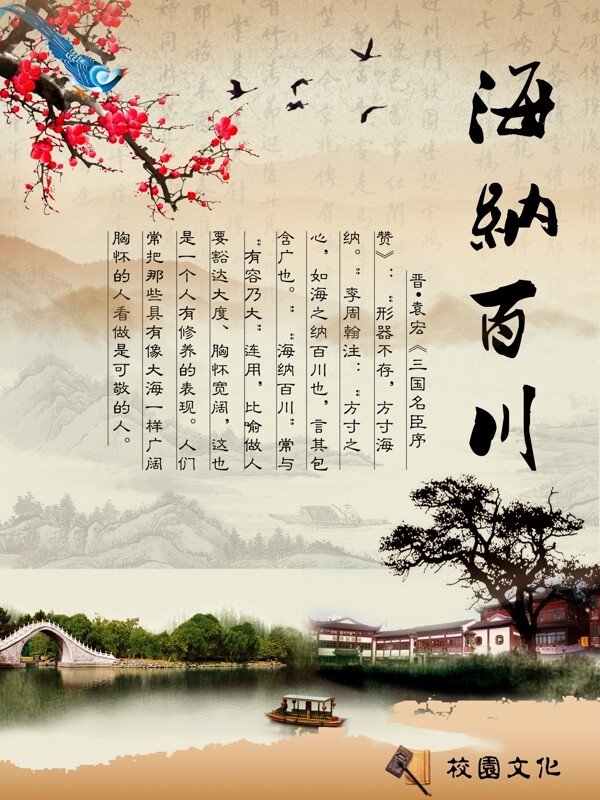 海納百川
晋·袁宏《三国名臣序
赞》：“形器不存，方寸海
纳。”李周翰注：“方寸之
心，如海之纳百川也，言其包
含广也。”“海纳百川”常与
“有容乃大”连用，比喻做人
要豁达大度、胸怀宽阔，这也
是一个人有修养的表现。人们
常把那些具有像大海一样广阔
胸怀的人看做是可敬的人。
校園文化